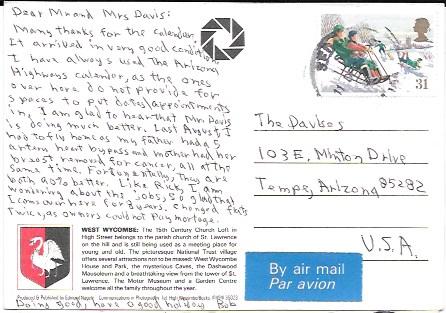 Dear Mr and Mrs Davis:
Many thanks for the calender.
It arrived in very good condition
I have allways used The Arizona
Highways calender, as the ones
over here do not provide for
spaces to put dates/appointments
in. I am glad to hear that Mr Davis
is doing much better. Last August, I
had to fly home as my father had a 5
artery heart bypass and mother had her
breast removed for cancer, all at the
same time. Fortunentally, they are
both 90% better. Like Rick, I am
wondering about the jobs, so glad that
I came over here for 3 years. changed flats
twice, as owners could not pay mortgage.
WEST WYCOMBE: The 15th Century Church Loft in
High Street belongs to the parish church of St. Lawrence
on the hill and is still being used as a meeting place for
young and old. The picturesque National Trust village
offers several attractions not to be missed: West Wycombe
House and Park, the mysterious Caves, the Dashwood
Mausoleum and a breathtaking view from the tower of St.
Lawrence. The Motor Museum and a Garden Centre
welcome all the family throughout the year.
Produced & Published by
Doing good, have a good holiday Bob
31
The Davises
103 E. Minton Drive
Tempe, Arizona 85282
U.S.A.
By air mail
Par avion